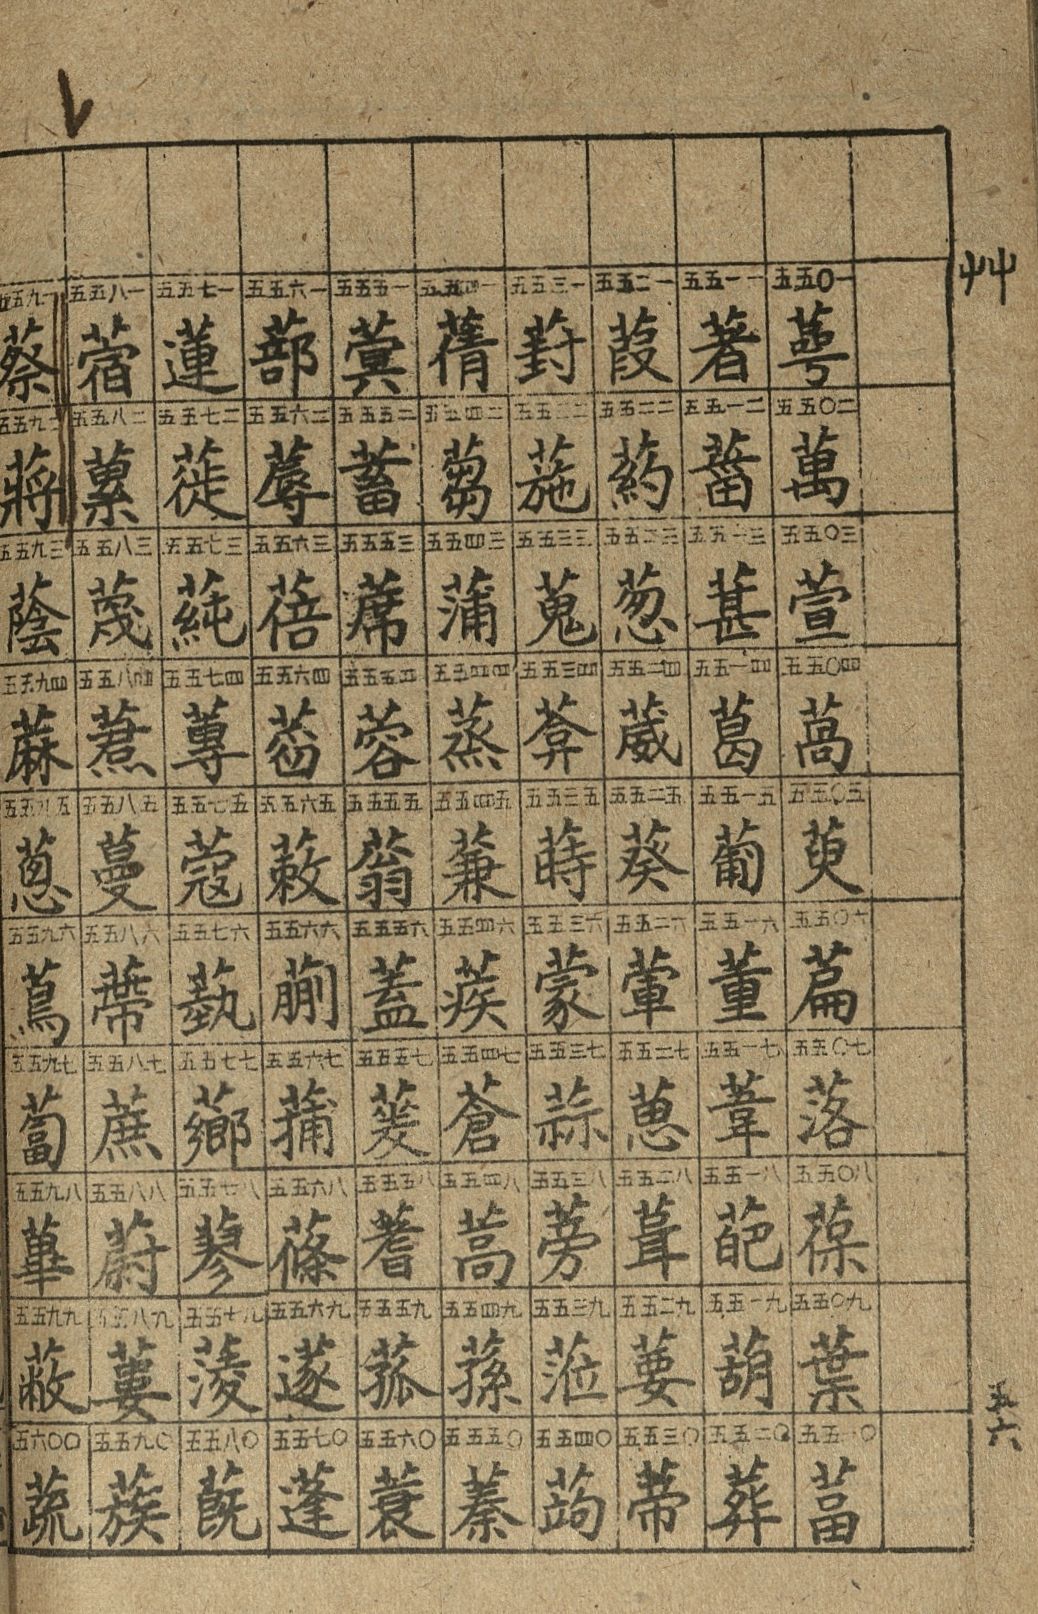 艸
五五〇一 萼 五五〇二 萬 五五〇三 萱 五五〇四 萵 五五〇五 萸 五五〇六 萹 五五〇七 落 五五〇八 葆 五五〇九 葉 五五一〇 葍
五五一一 著 五五一二 葘 五五一三 葚 五五一四 葛 五五一五 葡 五五一六 董 五五一七 葦 五五一八 葩 五五一九 葫 五五二〇 葬
五五二一 葭 五五二二 葯 五五二三 葱 五五二四 葳 五五二五 葵 五五二六 葷 五五二七 葸 五五二八 葺 五五二九 葽 五五三〇 蒂
五五三一 葑 五五三二 葹 五五三三 蒐 五五三四 葊 五五三五 蒔 五五三六 蒙 五五三七 蒜 五五三八 蒡 五五三九 蒞 五五四〇 蒟
五五四一 蒨 五五四二 蒭 五五四三 蒲 五五四四 蒸 五五四五 蒹 五五四六 蒺 五五四七 蒼 五五四八 蒿 五五四九 蓀 五五五〇 蓁
五五五一 蓂 五五五二 蓄 五五五三 蓆 五五五四 蓉 五五五五 蓊 五五五六 蓋 五五五七 蓌 五五五八 蓍 五五五九 菰 五五六〇 蓑
五五六一 蔀 五五六二 蓐 五五六三 蓓 五五六四 五五六五 蔌 五五六六 蒯 五五六七 蒱 五五六八 蓧 五五六九 蓫 五五七〇 蓬
五五七一 蓮 五五七二 蓰 五五七三 蒓 五五七四 蓴 五五七五 蔻 五五七六 蓺 五五七七 薌 五五七八 蓼 五五七九 蔆 五五八〇 蔇
五五八一 蓿 五五八二 蔂 五五八三 蔑 五五八四 五五八五 蔓 五五八六 蔕 五五八七 蔗 五五八八 蔚 五五八九 蔞 五五九〇 蔟
五五九一 蔡 五五九二 蔣 五五九三 蔭 五五九四 蔴 五五九五 蔥 五五九六 蔦 五五九七 蔔 五五九八 蓽 五五九九 蔽 五六〇〇 蔬
五六